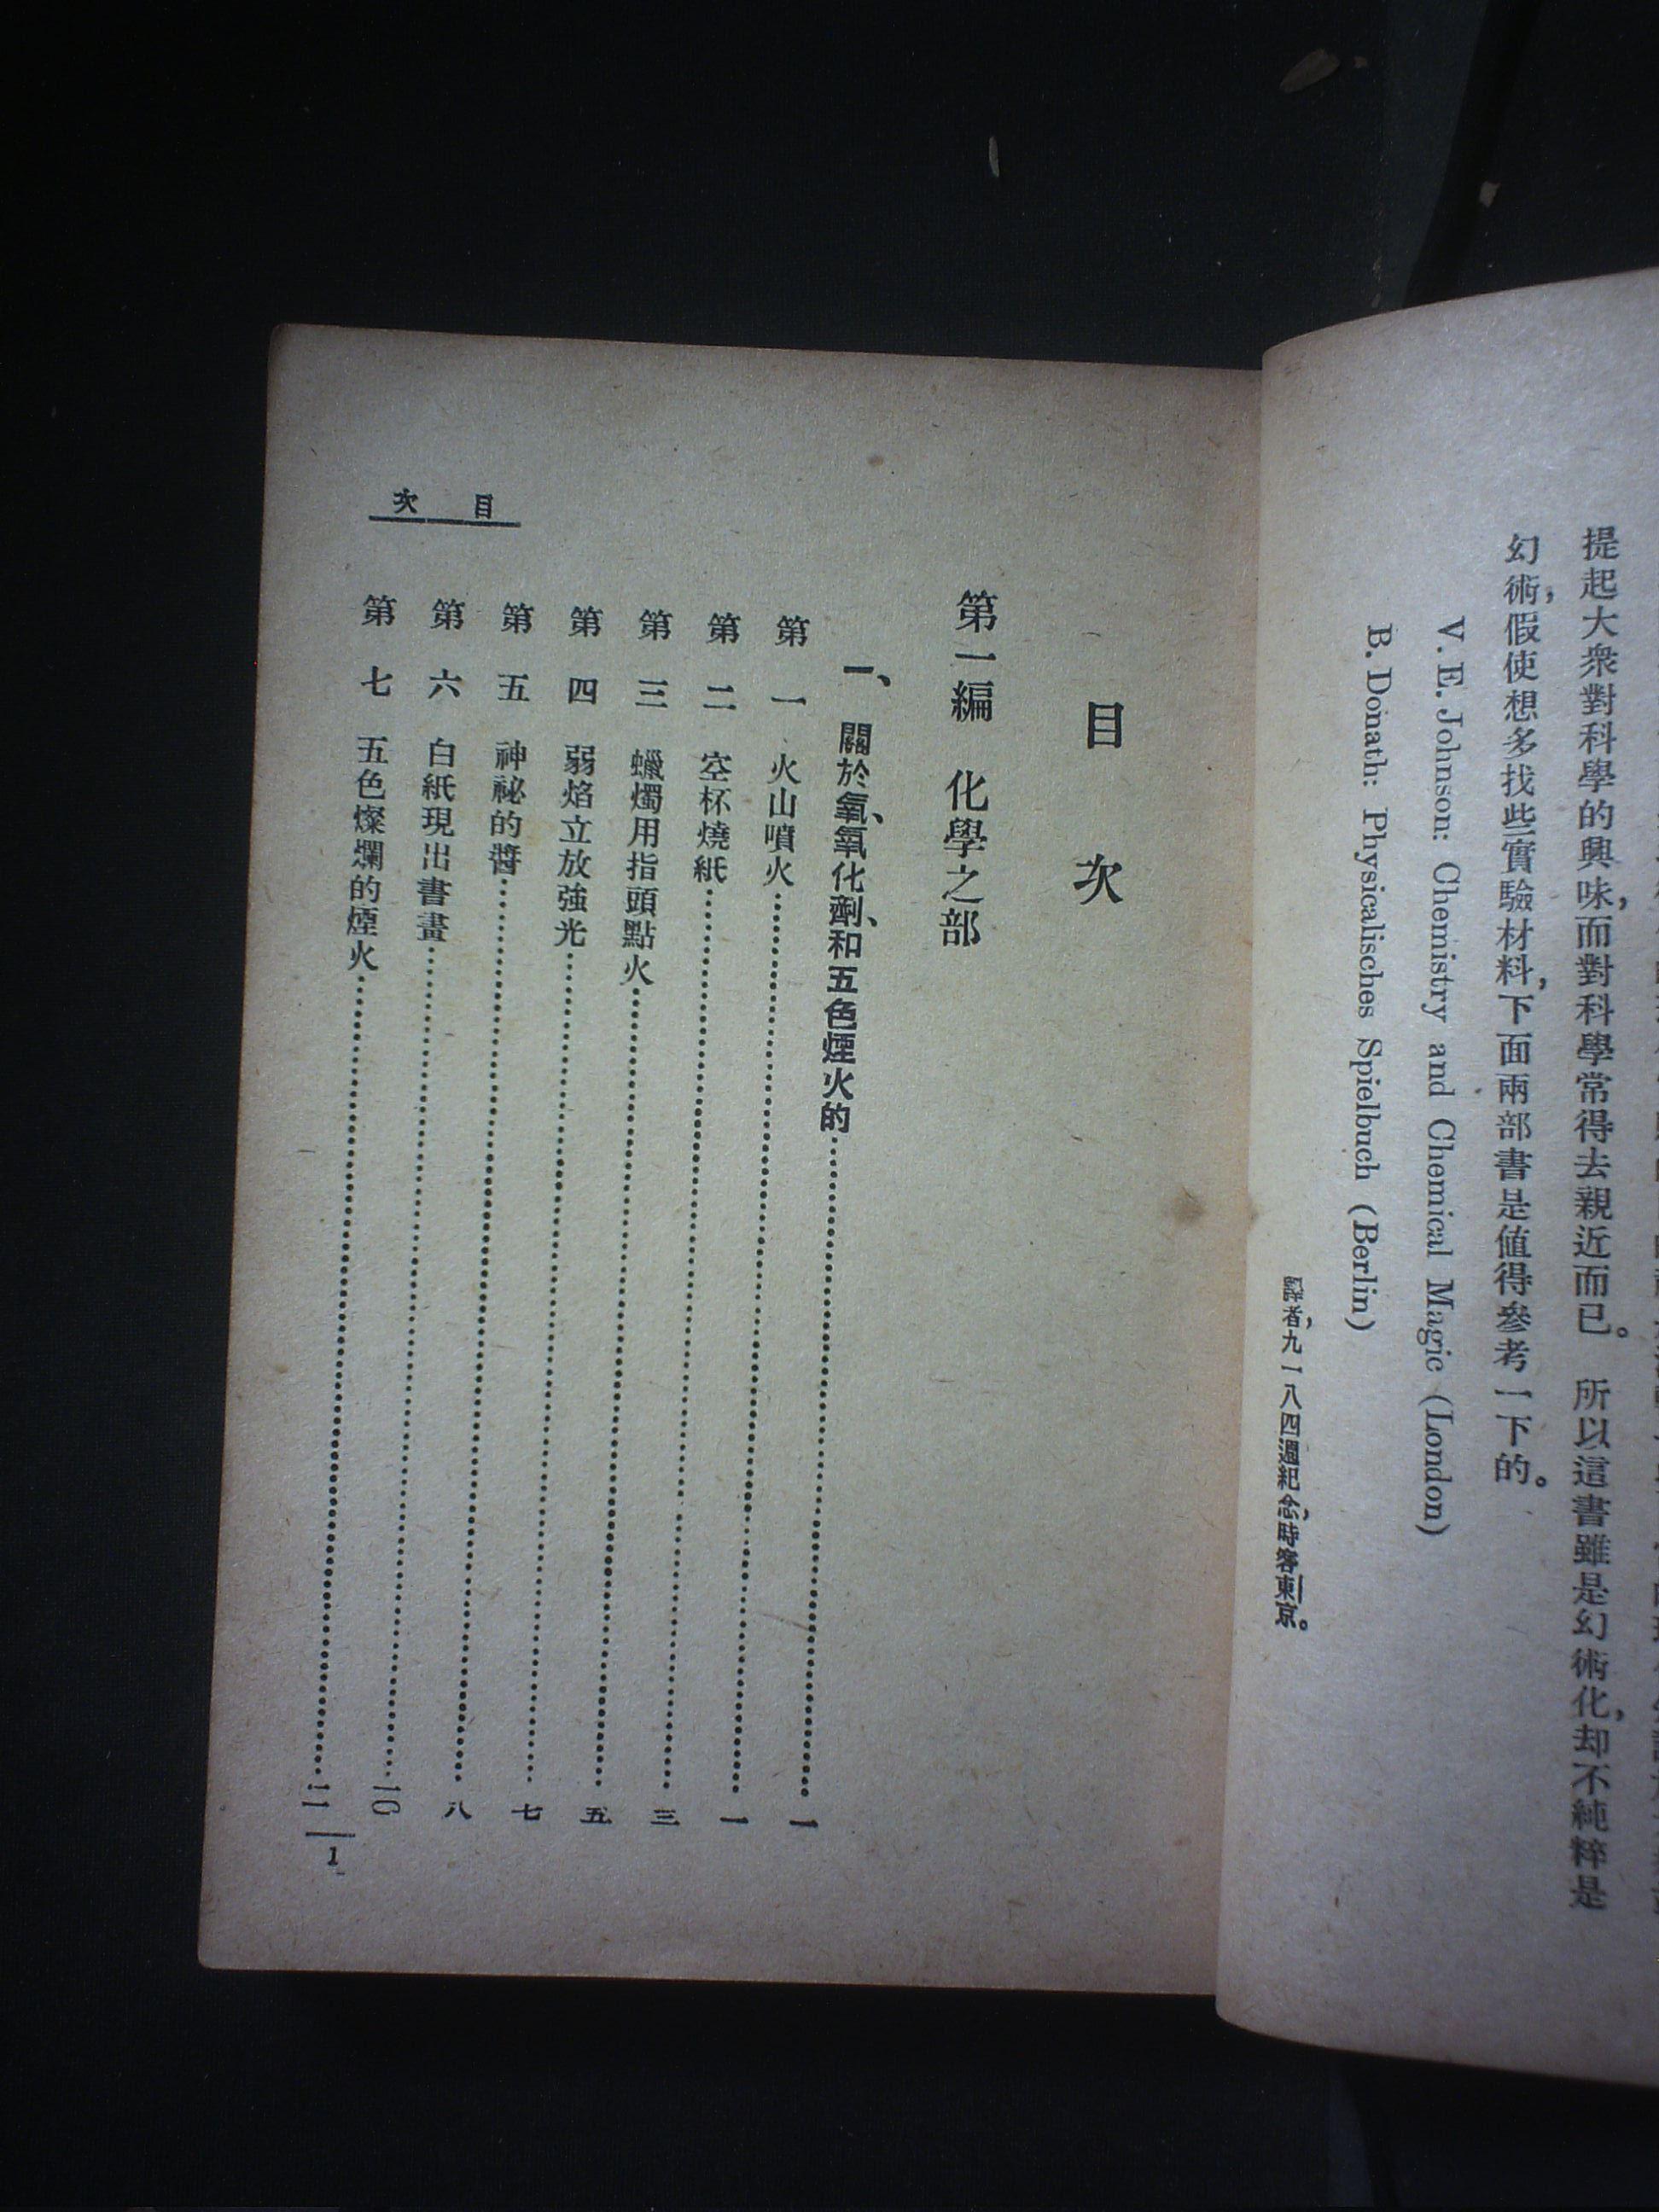 提起大衆對科學的興味，而對科學常得去親近而已。　所以這書雖是幻術化，却不純粹是
幻術，假使想多找些實驗材料，下面兩部書是値得參考一下的。
V. E. Johnson: Chemistry and Chemical Magic (London)
B. Donath: Physicalisches Spielbuch (Berlin)
譯者，九一八四週紀念，時客東京。
目次
第一編　化學之部
一、關於氧、氧化劑、和五色煙火的……一
第一　火山噴火……一
第二　空杯燒紙……三
第三　蠟燭用指頭點火……五
第四　弱焰立放強光……七
第五　神祕的醬……八
第六　白紙現出書畫……一〇
第七　五色燦爛的煙火……一一
目次
1